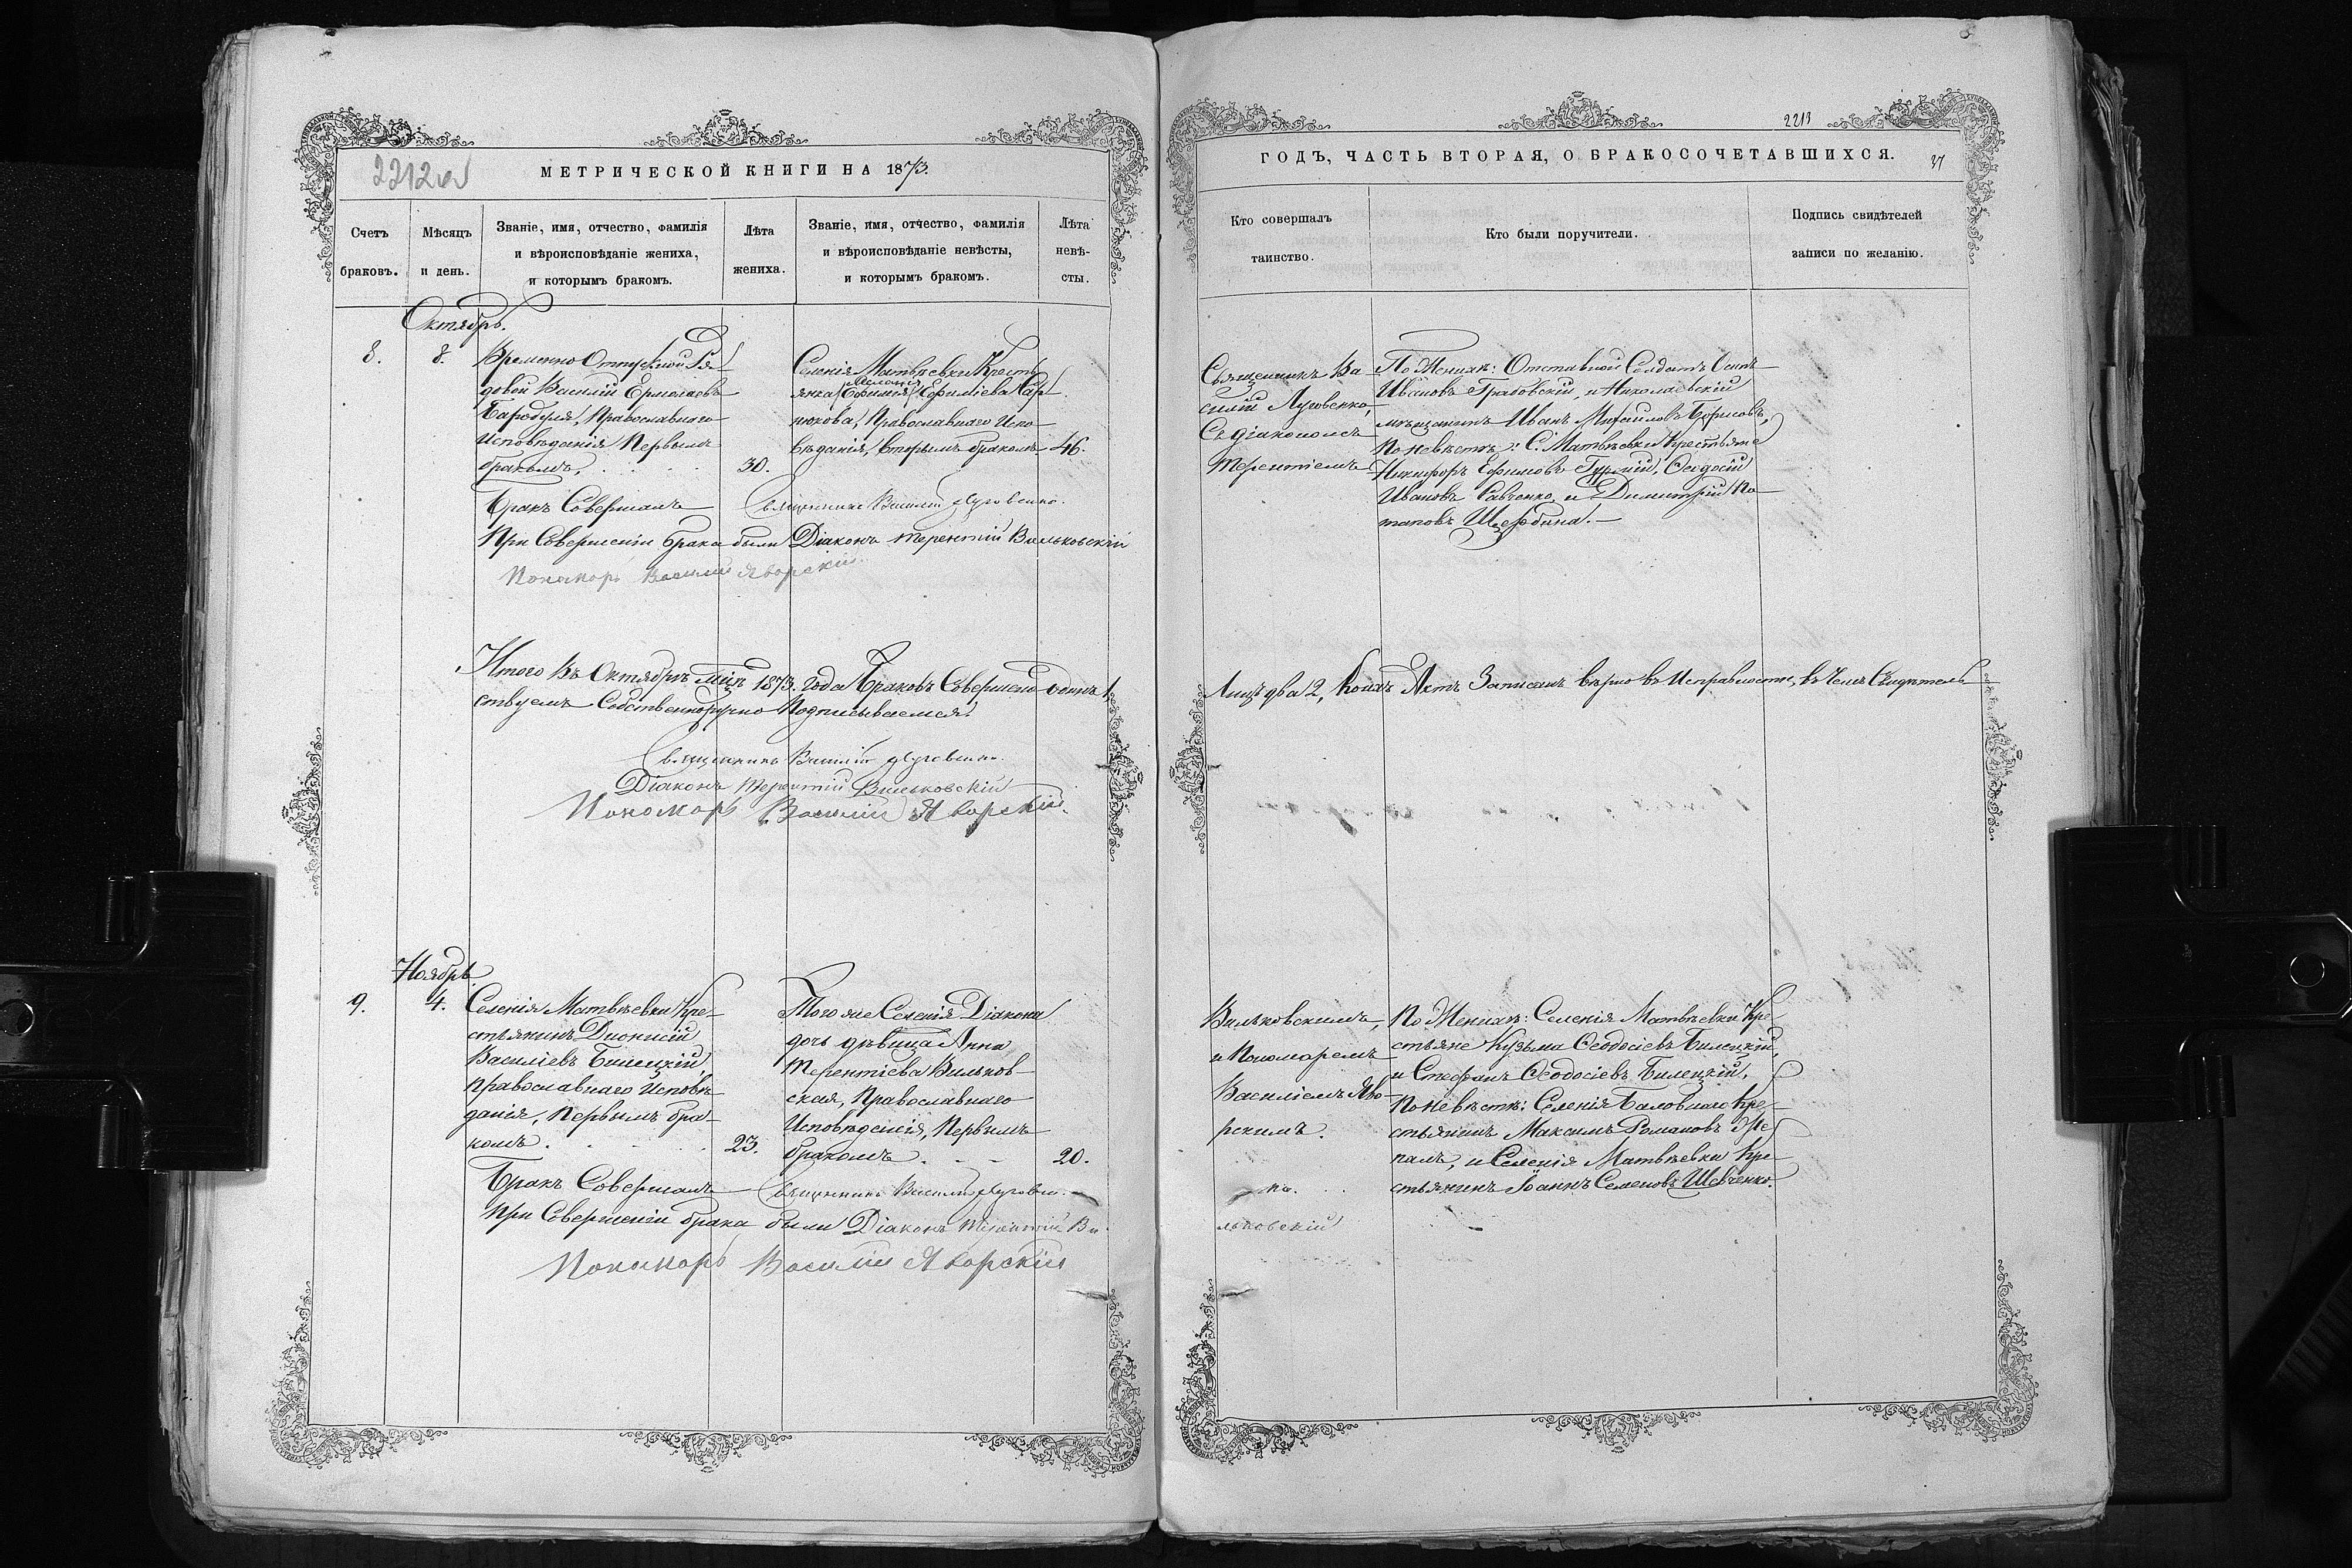 2212об
МЕТРИЧЕСКОЙ КНИГИ НА 1873.
Счетъ
браковъ.
Мѣсяцъ
и день.
Званіе, имя, отчество, фамилія
и вѣроисповѣданіе жениха,
и которымъ бракомъ.
Лѣта
жениха.
Званіе, имя, отчество, фамилія
и вѣроисповѣданіе невѣсты,
и которымъ бракомъ.
Лѣта
невѣ-
сты.
Октябрь.
8.
8.
Временно Отпускной Ря-
довой Василій Ермолаевъ
Православнаго
Исповѣданія Первымъ
бракомъ,
30.
Селенія Матвѣевки Кресть-
Меланія
янка (Ефимія) Ефиміева Кар-
пюкова, Православнаго Испо-
вѣданія, Вторымъ бракомъ
46.
Бракъ Совершалъ Священникъ Василій Луговенко.
При Совершеніи брака были Діаконъ Терентій Вильковскій
Пономарь Василій Яворскій.
Итого Въ Октябрѣ мцѣ 1873. года Браковъ Совершено одинъ 1,
ствуемъ Собственноручно Подписываемся.
Священникъ Василій Луговенко.
Діаконъ Терентій Вильковскій
Пономарь Василій Яворскій.
Ноябрь.
9.
4.
Селенія Матвѣевки Кре-
стьянинъ Діонисій
Василіевъ Билецкій,
Православнаго Исповѣ-
данія, Первымъ бра-
комъ.
23.
Того же Селенія Діакона
дочь дѣвица Анна
Терентіева Вильков-
ская, Православнаго
Исповѣденія, Первымъ
бракомъ
20.
Бракъ Совершалъ Священникъ Василій Луговен-
При Совершеніи брака были Діаконъ Терентій Ви-
Пономарь Василій Яворскій
2213
ГОДЪ, ЧАСТЬ ВТОРАЯ, О БРАКОСОЧЕТАВШИХСЯ.
37
Кто совершалъ
таинство.
Кто были поручители.
Подпись свидѣтелей
записи по желанію.
Священникъ Ва-
силій Луговенко,
Съ діакономъ
Терентіемъ
По Женихѣ: Отставной Солдатъ Осипъ
Ивановъ Грабовскій, и Николаевскій
мѣщанинъ Иванъ Михайловъ Борисовъ,
По невѣстѣ: С. Матвѣевки Крестьяне
Никифоръ Ефимовъ Гурскій, Ѳеодосій
Ивановъ Савченко и Димитрій По-
таповъ Щербина.
Лицъ два 2, коихъ Актъ Записанъ вѣрно въ Исправности, въ чемъ Свидѣтель-
Вильковскимъ,
и Пономаремъ
Василіемъ Яво-
рскимъ.
По Женихѣ: Селенія Матвѣевки Кре-
стьяне Кузьма Ѳеодосіевъ Билецкій,
и Стефанъ Ѳеодосіевъ Билецкій,
По невѣстѣ: Селенія Баловнаго Кре-
стьянинъ Максимъ Романовъ
и Селенія Матвѣевки Кре-
стьянинъ Іоаннъ Семеновъ Шевченко.
ко.
льковскій